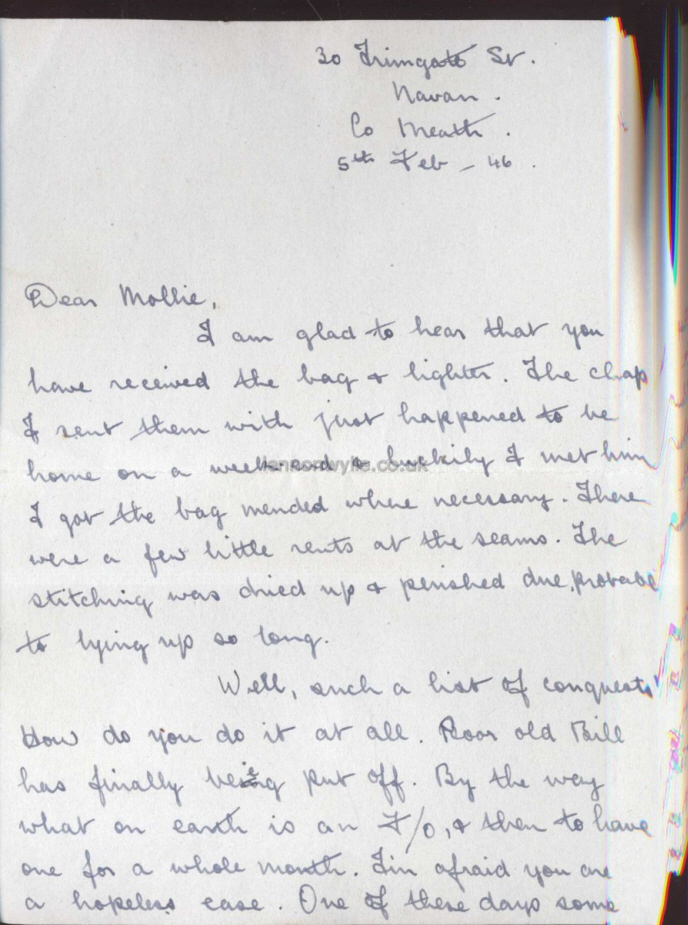 30 Trimgate St.
Navan.
Co Meath.
5th Feb - 46.
Dear Mollie,
I am glad to hear that you
have received the bag & lighter. The chap
I sent them with just happened to be
home on a week-end & luckily I met him
I got the bag mended where necessary. There
were a few little rents at the seams. The
stitching was dried up & perished due, probabl
to lying up so long.
Well, such a list of conquests
How do you do it at all. Poor old Bill
has finally being put off. By the way
what on earth is an F/O, & then to have
one for a whole month. I'm afraid you are
a hopeless case. One of these days some